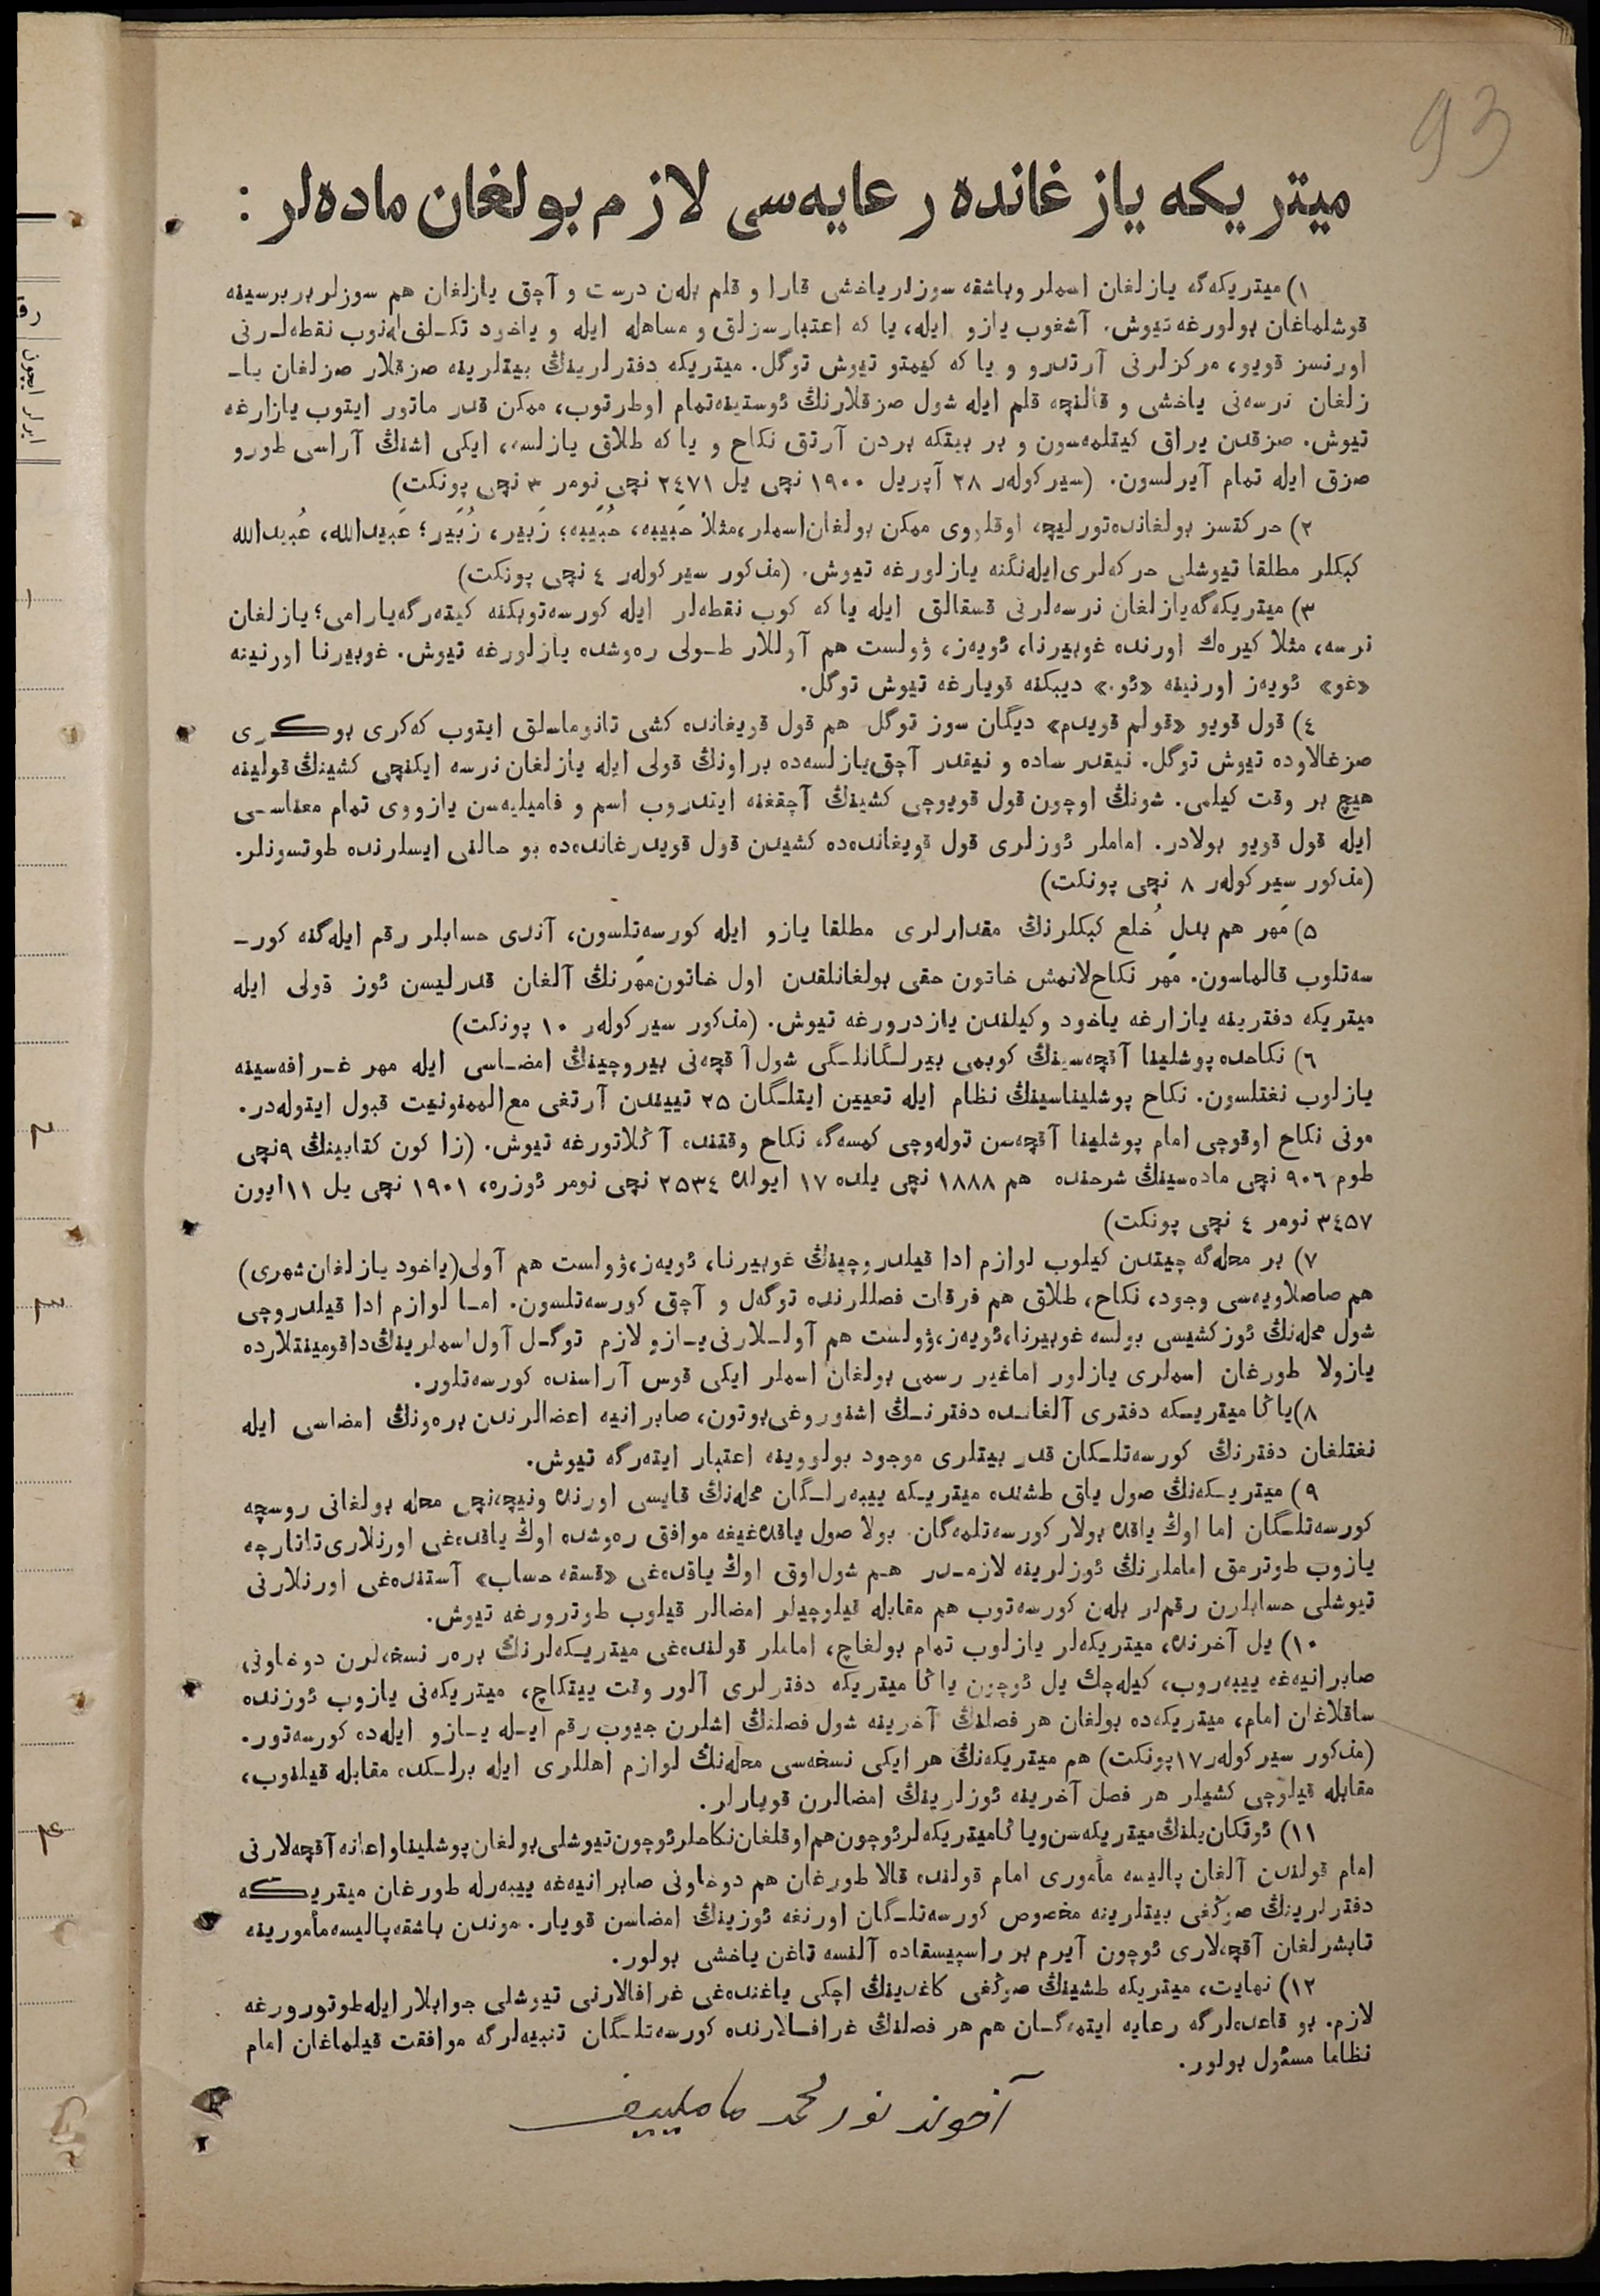 93
ميتريكه يازغانده رعايه‌سى لازم بولغان ماده‌لر :
١) ميتريكه‌گه يازلغان اسملر وباشقه سوزلر ياخشى قارا و قلم بله‌ن درست و آچق يازلغان هم سوزلر بر برسينه
قوشلماغان بولورغه تيوش. آشغوب يازو ايله، يا كه اعتبارسزلق و مساهله ايله و ياخود تكـلق‌له‌نوب نقطه‌لـرنى
اورنسز قويو، مركزلرنى آرتدرو و يا كه كيمتو تيوش توگل. ميتريكه دفترلرينڭ بيتلرينه صزقلار صزلغان يا‍ـ
زلغان نرسه‌نى ياخشى و قالنچه قلم ايله شول صزقلارنڭ ئوستينه‌تمام اوطرتوب، ممكن قدر ماتور ايتوب يازارغه
تيوش. صزقدن يراق كيتلمه‌سون و بر بيتكه بردن آرتق نكاح و يا كه طلاق يازلسه، ايكى اشنڭ آراسى طورو
صزق ايله تمام آيرلسون. (سيركولەر ٢٨ آپريل ١٩٠٠ نچى يل ٢٤٧١ نچى نومر ٣ نچى پونكت)
٢) حركتسز بولغانده‌تورليچه اوقلووى ممكن بولغان‌اسملر،مثلا حَبيبه، حُبَيبه؛ زَبير، زُبَير؛ عَبيدالله، عُبيدالله
كبكلر مطلقا تيوشلى حركه‌لرى‌ايله‌نگنه يازلورغه تيوش. (مذكور سيركولەر ٤ نچى پونكت)
٣) ميتريكه‌گه‌يازلغان نرسه‌لرنى قسقالق ايله يا كه كوب نقطه‌لر ايله كورسه‌توبكنه كيته‌رگه‌يارامى؛ يازلغان
نرسه، مثلا كيره‌ك اورنده غوبيرنا، ئويه‌ز، ۋولست هم آوللار طـولى ره‌وشده يازلورغه تيوش. غوبيرنا اورنينه
«غو» ئويه‌ز اورنينه «ئو.» ديبكنه قويارغه تيوش توگل.
٤) قول قويو «قولم قويدم» ديگان سوز توگل هم قول قويغانده كشى تانوماسلق ايتوب كه‌كرى بوكـرى
صزغالاوده تيوش توگل. نيقدر ساده و نيقدر آچق‌يازلسه‌ده براونڭ قولى ايله يازلغان نرسه ايكنچى كشينڭ قولينه
هيچ بر وقت كيلمى. شونڭ اوچون قول قويوچى كشينڭ آچقغنه ايتدروب اسم و فاميليه‌سن يازووى تمام معناسـى
ايله قول قويو بولادر. اماملر ئوزلرى قول قويغانده‌ده كشيدن قول قويدرغانده‌ده بو حالنى ايسلرنده طوتسونلر.
(مذكور سيركولەر ٨ نچى پونكت)
٥) مَهر هم بدل خُلع كبكلرنڭ مقدارلرى مطلقا يازو ايله كورسه‌تلسون، آندى حسابلر رقم ايله‌گنه كور‍ـ
سه‌تلوب قالماسون. مَهر نكاح‌لانمش خاتون حقى بولغانلقدن اول خاتون‌مَهرنڭ آلغان قدرليسن ئوز قولى ايله
ميتريكه دفترينه يازارغه ياخود وكيلندن يازدرورغه تيوش. (مذكور سيركولەر ١٠ پونكت)
٦) نكاحده پوشلينا آقچه‌سينڭ كوبمى بيرلـگانلـگى شول آقچه‌نى بيروچينڭ امضـاسى ايله مهر غـرافه‌سينه
يازلوب نغتلسون. نكاح پوشليناسينڭ نظام ايله تعيين ايتلـگان ٢٥ تييندن آرتغى مع‌الممنونيت قبول ايتوله‌در.
مونى نكاح اوقوچى امام پوشلينا آقچه‌سن توله‌وچى كمسه‌گه نكاح وقتنده آڭلاتورغه تيوش. (زا كون كتابينڭ ٩نچى
طوم ٩٠٦ نچى ماده‌سينڭ شرحنده هم ١٨٨٨ نچى يلده ١٧ ايولده ٢٥٣٤ نچى نومر ئوزره، ١٩٠١ نچى يل ١١ايون
٣٤٥٧ نومر ٤ نچى پونكت)
٧) بر محله‌گه چيتدن كيلوب لوازم ادا قيلدروچينڭ غوبيرنا، ئويه‌ز،ۋولست هم آولى(ياخود يازلغان‌شهرى)
هم صاصلاويه‌سى وجود، نكاح، طلاق هم فرقات فصللرنده توگه‌ل و آچق كورسه‌تلسون. امـا لوازم ادا قيلدروچى
شول محله‌نڭ ئوزكشيسى بولسه غوبيرنا،ئويه‌ز،ۋولست هم آولـلارنى‌يـازو لازم توگـل آول‌اسملرينڭ‌داقومينتلارده
يازولا طورغان اسملرى يازلور اماغير رسمى بولغان اسملر ايكى قوس آراسنده كورسه‌تلور.
٨)ياڭا ميتريـكه دفترى آلغانـده دفترنـڭ اشنوروغى‌بوتون، صابرانيه اعضالرندن بره‌ونڭ امضاسى ايله
نغتلغان دفترنڭ كورسه‌تلـكان قدر بيتلرى موجود بولووينه اعتبار ايته‌رگه تيوش.
٩) ميتريـكه‌نڭ صول ياق طشنده ميتريـكه ييبه‌رلـگان محله‌نڭ قايسى اورنده ونيچه‌نچى محله بولغانى روسچه
كورسه‌تلـگان اما اوڭ ياقده بولار كورسه‌تلمه‌گان. بولا صول ياقده‌غيغه موافق ره‌وشده اوڭ ياقده‌غى اورنلارى‌تاتارچه
يازوب طوترمق اماملرنڭ ئوزلرينه لازمـدر هـم شول‌اوق اوڭ ياقده‌غى «قسقه حساب» آستنده‌غى اورنلارنى
تيوشلى حسابلرن رقملر بله‌ن كورسه‌توب هم مقابله قيلوچيلر امضالر قيلوب طوترورغه تيوش.
١٠) يل آخرنده، ميتريكه‌لر يازلوب تمام بولغاچ، اماملر قولنده‌غى ميتريـكه‌لرنڭ بره‌ر نسخه‌لرن دوخاونى
صابرانيه‌غه ييبه‌روب، كيله‌چك يل ئوچون ياڭا ميتريكه دفترلرى آلور وقت ييتكاچ، ميتريكه‌نى يازوب ئوزنده
ساقلاغان امام، ميتريكه‌ده بولغان هر فصلنڭ آخرينه شول فصلنڭ اشلرن جيوب رقم ايـله يـازو ايله‌ده كورسه‌تور.
(مذكور سيركولەر ١٧پونكت) هم ميتريكه‌نڭ هر ايكى نسخه‌سى محله‌نڭ لوازم اهللرى ايله برلـكده مقابله قيلنوب،
مقابله قيلوچى كشيلر هر فصل آخرينه ئوزلرينڭ امضالرن قويارلر.
١١) ئوتكان‌يلنڭ‌ميتريكه‌سن‌وياڭاميتريكه‌لرئوچون‌هم‌اوقلغان‌نكاحلرئوچون‌تيوشلى‌بولغان‌پوشليناواعانه‌آقچه‌لارنى
امام قولندن آلغان پاليسه مأمورى امام قولنده قالا طورغان هم دوخاونى صابرانيه‌غه ييبه‌رله طورغان ميتريكه
دفترلرينڭ صوڭغى بيتلرينه مخصوص كورسه‌تلـگان اورنغه ئوزينڭ امضاسن قويار. موندن باشقه‌پاليسه‌مأمورينه
تابشرلغان آقچه‌لارى ئوچون آيرم بر راسپيسقاده آلنسه تاغن ياخشى بولور.
١٢) نهايت، ميتريكه طشينڭ صوڭغى كاغدينڭ اچكى ياغنده‌غى غرافالارنى تيوشلى جوابلار‌ايله‌طوتورورغه
لازم. بو قاعده‌لرگه رعايه ايتمه‌گـان هم هر فصلنڭ غرافـالارنده كورسه‌تلـگان تنبيه‌لرگه موافقت قيلماغان امام
نظاما مسئول بولور.
آخوند نورمحمد ماملييف